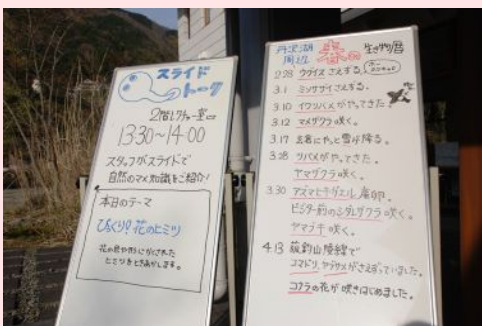 スライド
トーク
2階レクチャー室にて
13:30~14:00
スタッフがスライドで
自然のマメ知識をご紹介!
本日のテーマ
びっくり!花のヒミツ
花の色や形にかくされた
ヒミツをときあかします。
丹沢湖
周辺
春
生き物暦
2.28 ウグイスさえずる。
3.1 ミソサザイさえずる。
3.10 イワツバメがやってきた
3.12 マメザクラ咲く。
3.17 玄倉にやっと雪が降る。
3.28 ツバメがやってきた。
ヤマザクラ咲く。
3.30 アズマヒキガエル産卵。
ビジター前のシダレザクラ咲く。
ヤマブキ咲く。
4.13
稜線で
コマドリ、ヤブサメがさえずっていました。
の花が咲きはじめました。